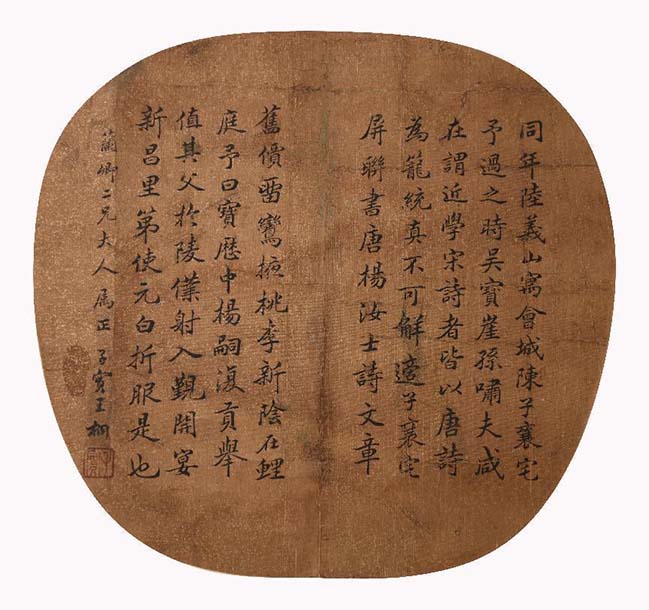 同年陸義山寓會城陳子襄宅
予過之時吳寶崖孫嘯夫咸
在謂近學宋詩者皆以唐詩
為籠統真不可解適子襄宅
屏聯書唐楊汝士詩文章
舊價留鸞掖桃李新陰在鯉
庭予曰寶歷中楊嗣復貢舉
值其父於陵僕射入覲開宴
新昌里第使元白折服是也
蘭卿二兄大人屬正 子實王柳